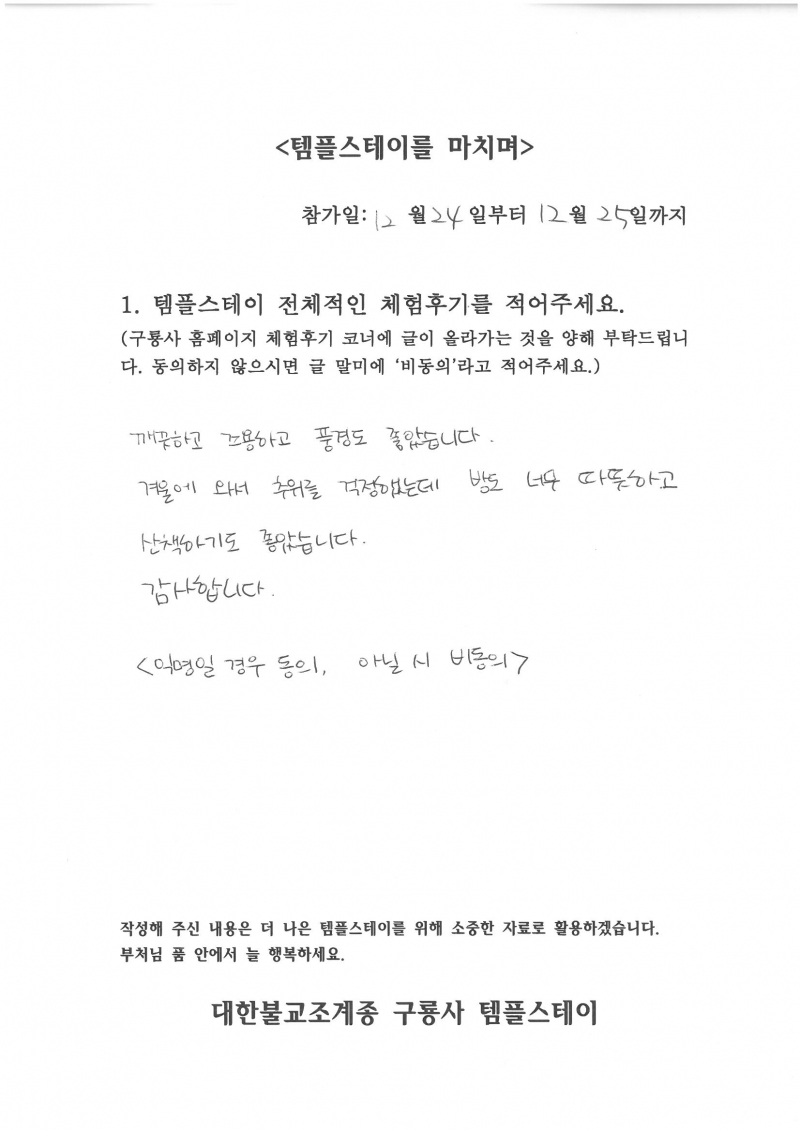 <템플스테이를 마치며>
참가일: 12 월 24 일부터 12월 25일까지
1. 템플스테이 전체적인 체험후기를 적어주세요.
(구룡사 홈페이지 체험후기 코너에 글이 올라가는 것을 양해 부탁드립니
다. 동의하지 않으시면 글 말미에 ‘비동의’라고 적어주세요.)
깨끗하고 조용하고 풍경도 좋았습니다.
겨울에 와서 추위를 걱정했는데 방도 너무 따뜻하고
산책하기도 좋았습니다.
감사합니다.
<익명일 경우 동의, 아닐 시 비동의>
작성해 주신 내용은 더 나은 템플스테이를 위해 소중한 자료로 활용하겠습니다.
부처님 품 안에서 늘 행복하세요.
대한불교조계종 구룡사 템플스테이